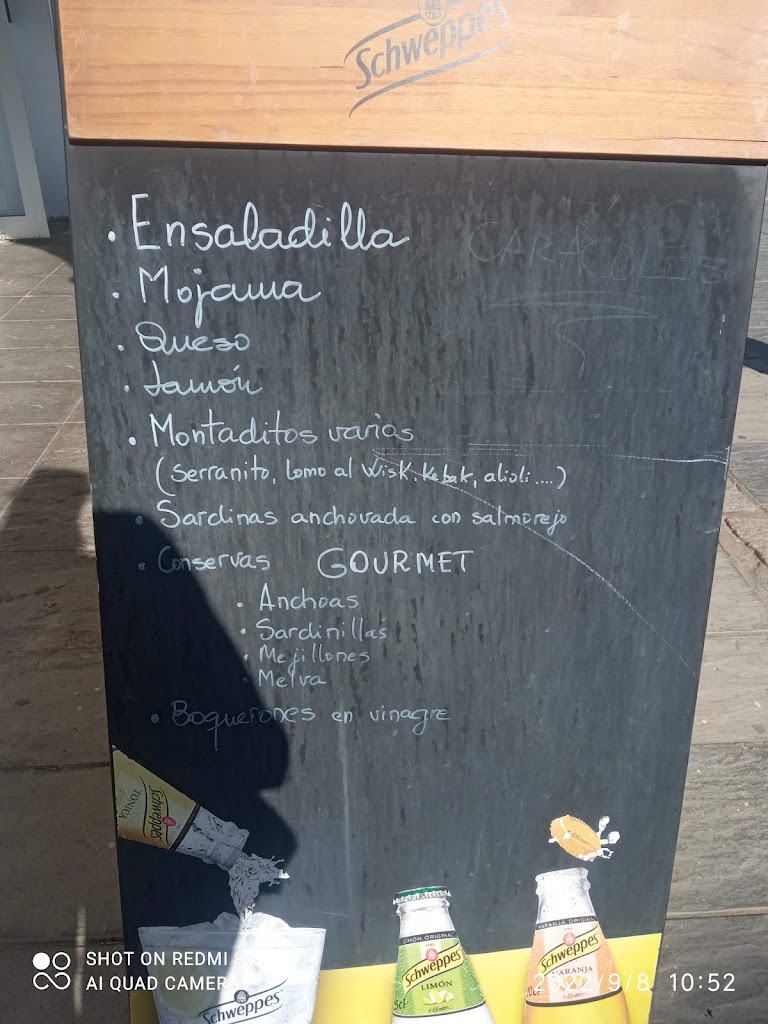 Schweppes
· Ensaladilla
CARACOLES
· Mojama
· Queso
· Jamón
· Montaditos varios
(Serranito, lomo al Wisk, Kebak, alioli....)
· Sardinas anchovada con salmorejo
· Conservas GOURMET
· Anchoas
· Sardinillas
· Mejillones
· Melva
· Boquerones en vinagre
Schweppes
TONICA
Schweppes
LIMÓN ORIGINAL
Schweppes
LIMÓN
NARANJA ORIGINAL
Schweppes
NARANJA
SHOT ON REDMI 9
AI QUAD CAMERA
2022/9/8 10:52